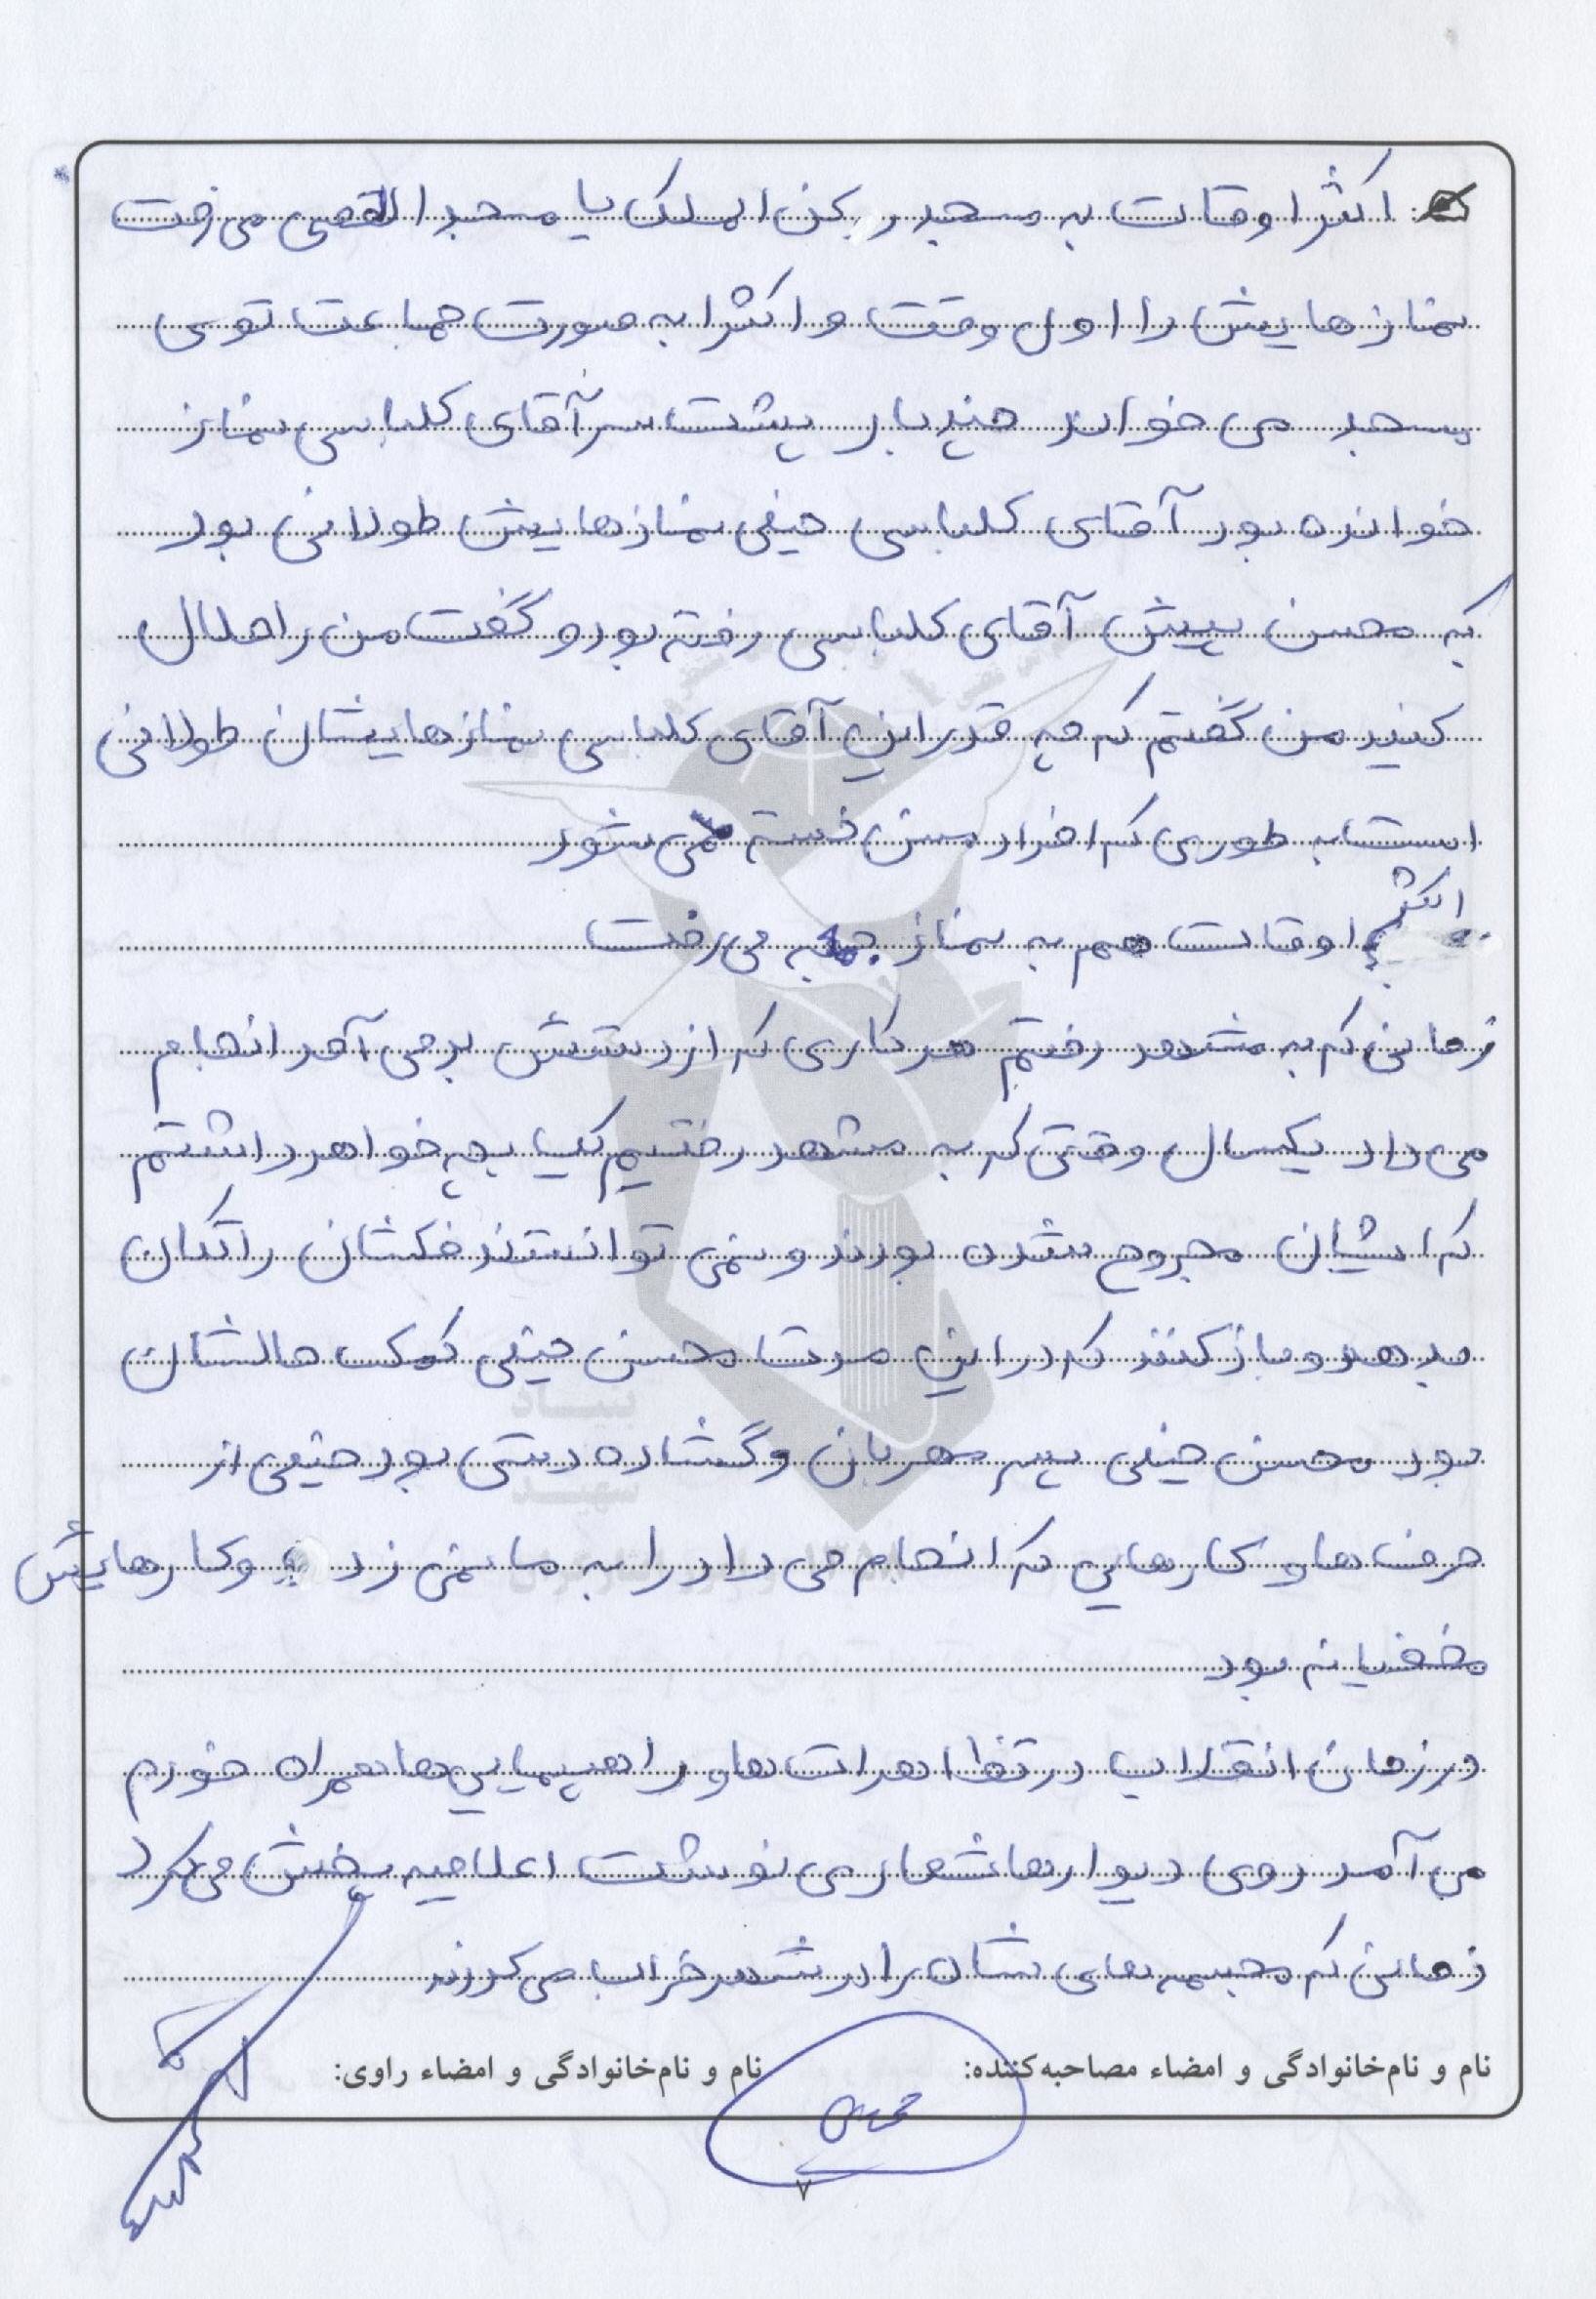 اکثر اوقات به مسجد رکن الملک یا مسجد القصی می رفت
نمازهایش را اول وقت و اکثرا به صورت جماعت توی
مسجد می خواند چند بار پشت سر آقای کلباسی نماز
خوانده بود آقای کلباسی خیلی نمازهایش طولانی بود
که محسن پیش آقای کلباسی رفته بود و گفت من را حلال
کنید من گفتم که چه قدر این آقای کلباسی نمازهایشان طولانی
است به طوری که افراد مسن خسته می شود
اکثر اوقات هم به نماز جمعه می رفت
زمانی که به مشهد رفتم هر کاری که از دستش بر می آمد انجام
می داد یکسال وقتی که به مشهد رفتیم یک بچه خواهر داشتم
که ایشان مجروح شدن بودند و نمی توانستند فکشان را تکان
بدهد و باز کنند که در این مدت محسن خیلی کمک حالشان
بود محسن خیلی پسر مهربان و گشاده دستی بود خیلی از
حرف ها و کارهایی که انجام می داد را به ما نمی زد و کارهایش
مخفیانه بود
در زمان انقلاب در تظاهرات ها و راهپیمایی ها همراه خودم
می آمد روی دیوارها شعار می نوشت اعلامیه پخش می کرد
زمانی که مجسمه های شاه را در شهر خراب می کردند
نام و نام‌خانوادگی و امضاء مصاحبه‌کننده:
نام و نام‌خانوادگی و امضاء راوی:
۷